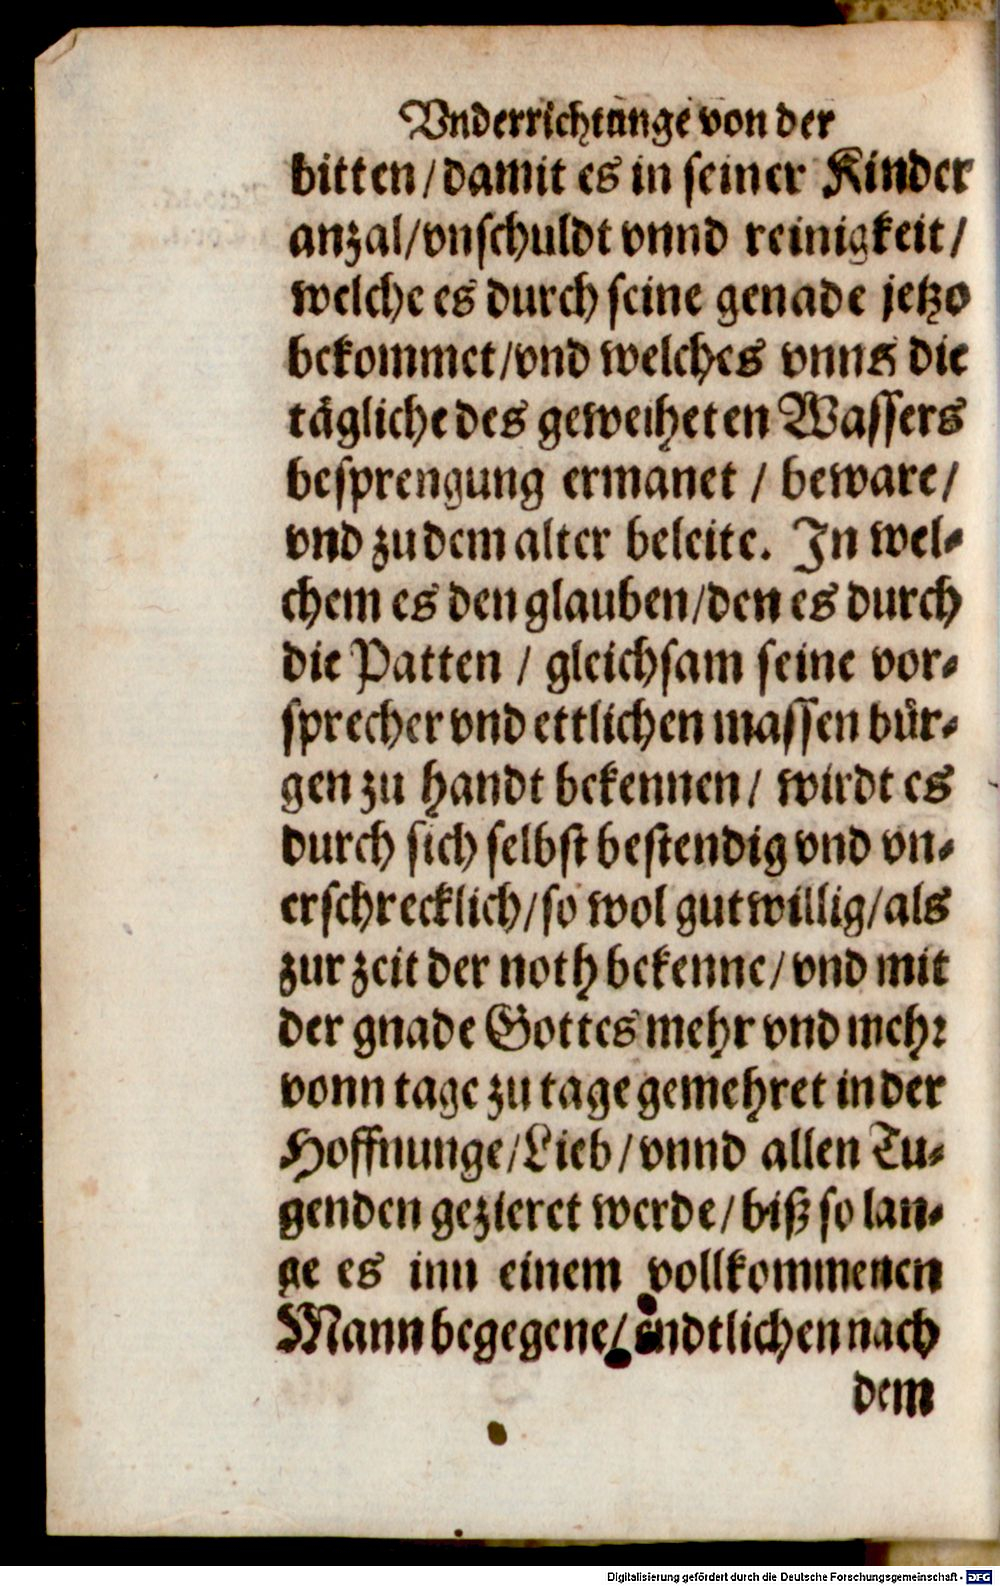 Vnderrichtunge von der
bitten / damit es in seiner Kinder
anzal / vnschuldt vnnd reinigkeit /
welche es durch seine genade jetzo
bekommet / vnd welches vnns die
tägliche des geweiheten Wassers
besprengung ermanet / beware /
vnd zu dem alter beleite. In wel⸗
chem es den glauben / den es durch
die Patten / gleichsam seine vor⸗
sprecher vnd ettlichen massen bür⸗
gen zu handt bekennen / wirdt es
durch sich selbst bestendig vnd vn⸗
erschrecklich / so wol gutwillig / als
zur zeit der noth bekenne / vnd mit
der gnade Gottes mehr vnd mehr
vonn tage zu tage gemehret in der
Hoffnunge / Lieb / vnnd allen Tu⸗
genden gezieret werde / biß so lan⸗
ge es inn einem vollkommenen
Mann begegene / endtlichen nach
dem
Digitalisierung gefördert durch die Deutsche Forschungsgemeinschaft - DFG